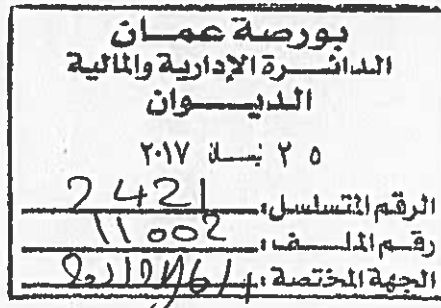 بورصة عمان
الدائرة الإدارية والمالية
الديوان
٢٥ نيسان ٢٠١٧
الرقم المتسلسل: 2421
رقم الملف: 11002
الجهة المختصة: